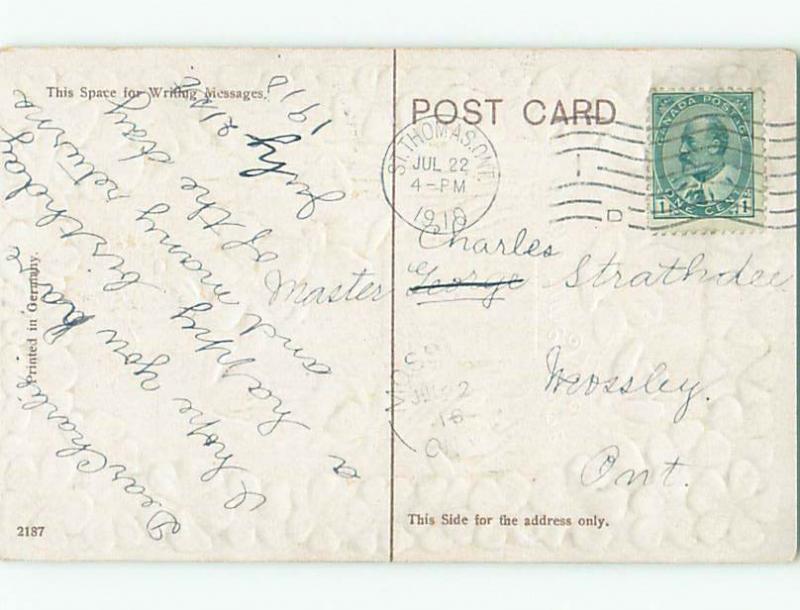 This Space for Writing Messages.
July 21st
1910
Dear Charlie
I hope you have
a happy birthday
and many returns
of the day
Printed in Germany.
2187
POST CARD
ST. THOMAS, ONT.
JUL 22
4-PM
1910
CANADA POSTAGE
1 ONE CENT 1
Charles
Master George Strathdee
Mossley.
Ont.
This Side for the address only.